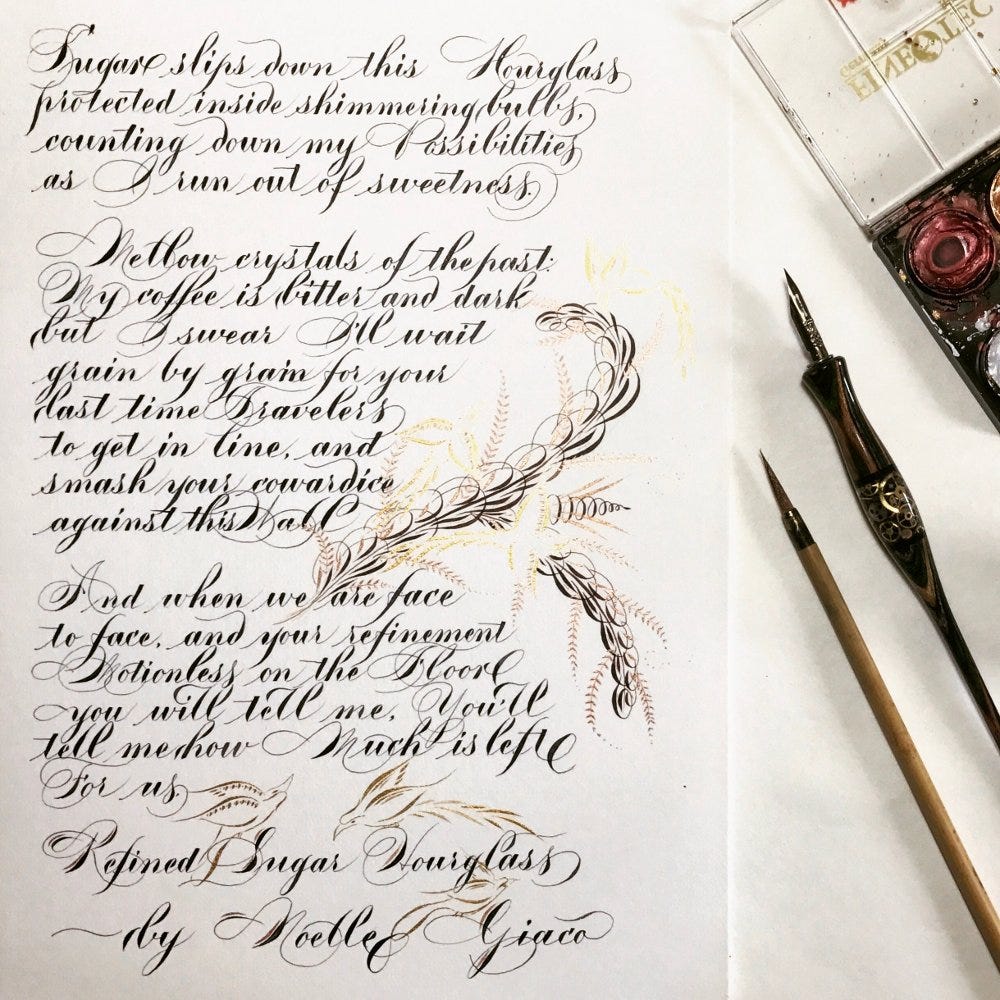 Sugar slips down this Hourglass
protected inside shimmering bulbs,
counting down my Possibilities
as I run out of sweetness.
Mellow crystals of the past:
My coffee is bitter and dark
but I swear I'll wait
grain by grain for your
last time Travelers
to get in line, and
smash your cowardice
against this Wall
And when we are face
to face, and your refinement
Motionless on the Floor
you will tell me, You'll
tell me how Much is left
For us.
Refined Sugar Hourglass
by Noelle Giaco